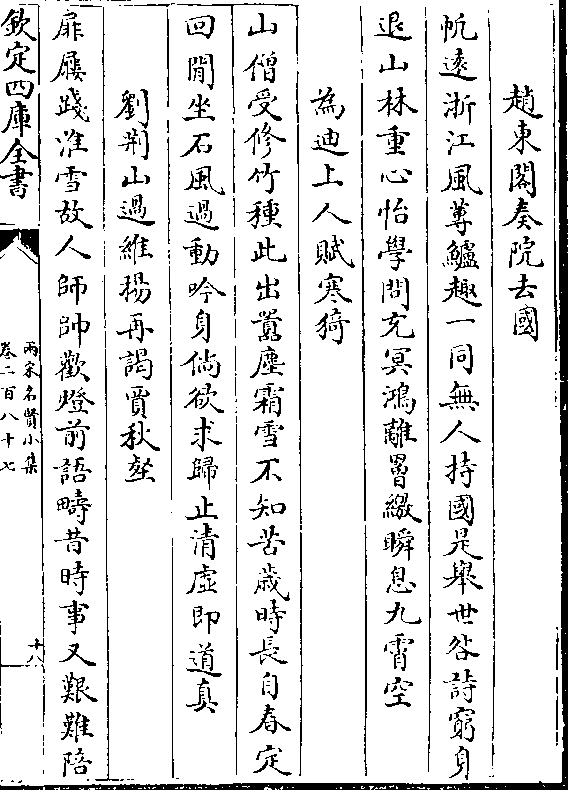 趙東閣奏院去國
帆逺浙江風蓴鱸趣一同無人持國是舉世咎詩窮身
退山林重心怡學問充冥鴻離罾繳瞬息九霄空
為迪上人賦寒猗
山僧受修竹種此出囂塵霜雪不知苦歳時長自春定
回閒坐石風過動吟身倘欲求歸止清虚即道真
劉荆山過維楊再謁賈秋壑
扉屨踐淮雪故人師帥歡燈前語疇昔時事又艱難陪
欽定四庫全書
兩宋名賢小集
卷二百八十七
十八